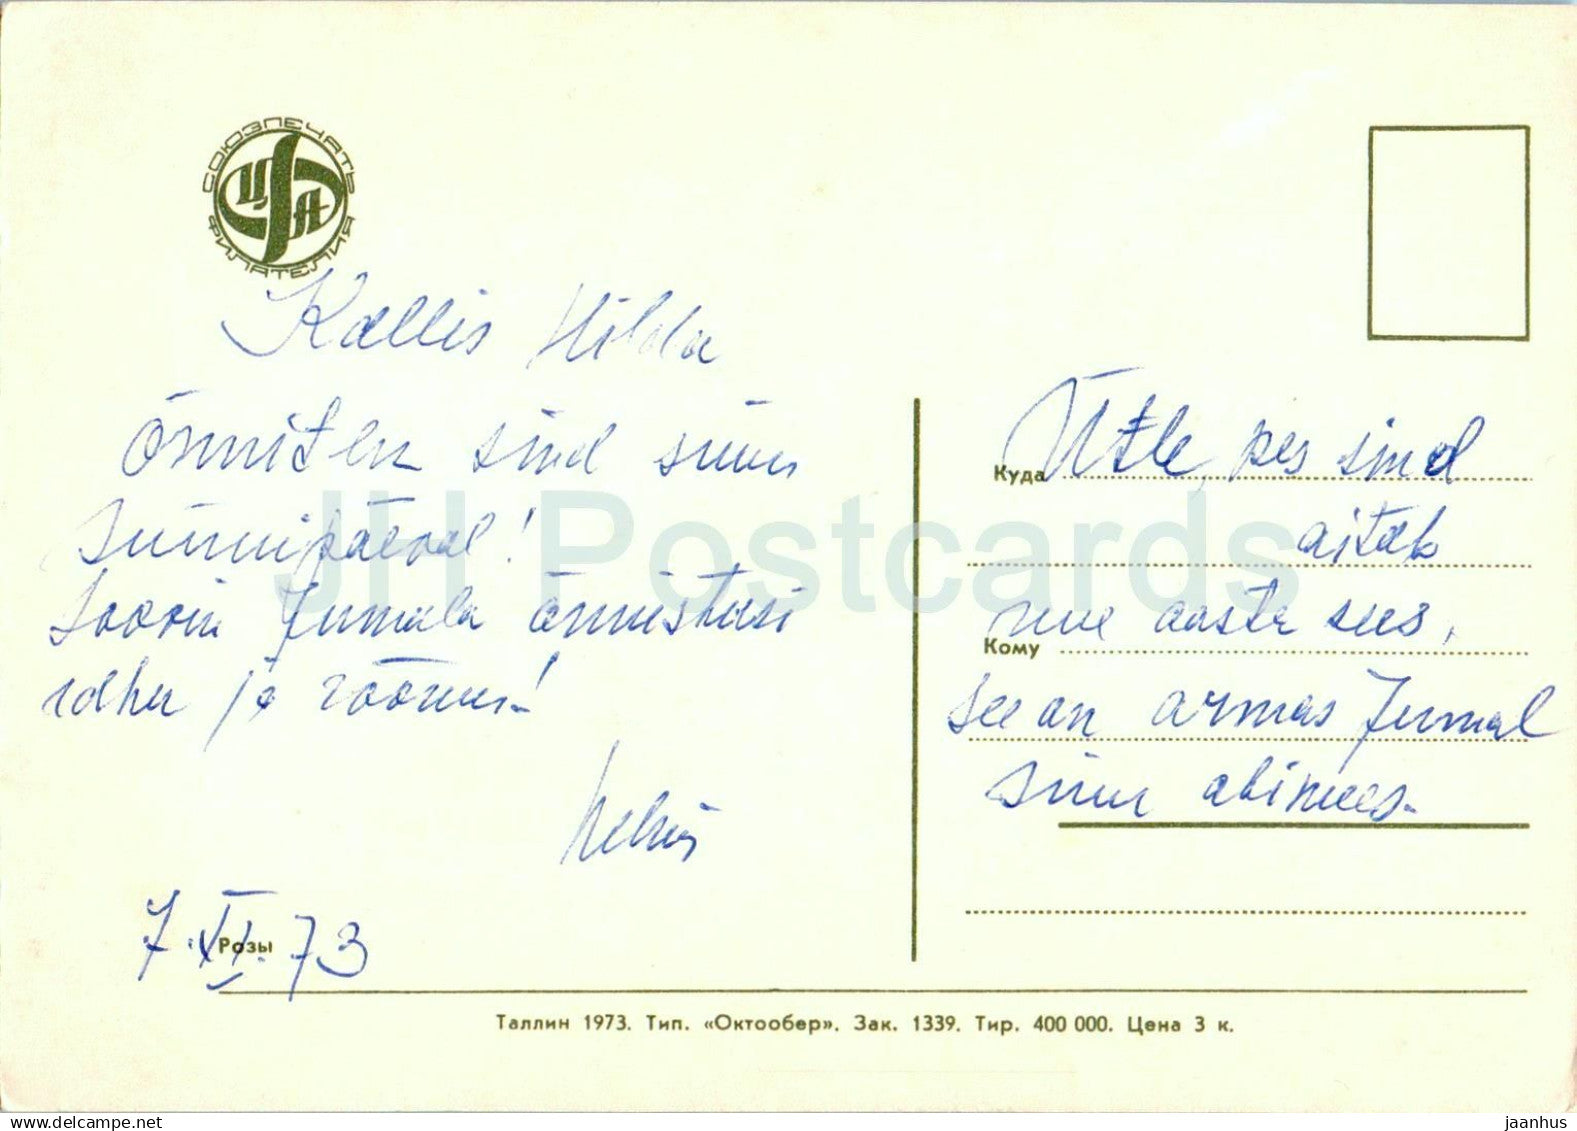 СОЮЗПЕЧАТЬ
ЦФА
ФИЛАТЕЛИЯ
Kallis Hilda
Õnnitlen sind sinu
sünnipäeval!
Soovin Jumala õnnistusi
rahu ja rõõmu!
7.XI.73
Розы
Куда
Ütle, kes sind
aitab
Кому
uue aasta sees,
see on armas Jumal
sinu abimees.
Таллин 1973. Тип. «Октообер». Зак. 1339. Тир. 400 000. Цена 3 к.
JH Postcards
www.delcampe.net
jaanhus